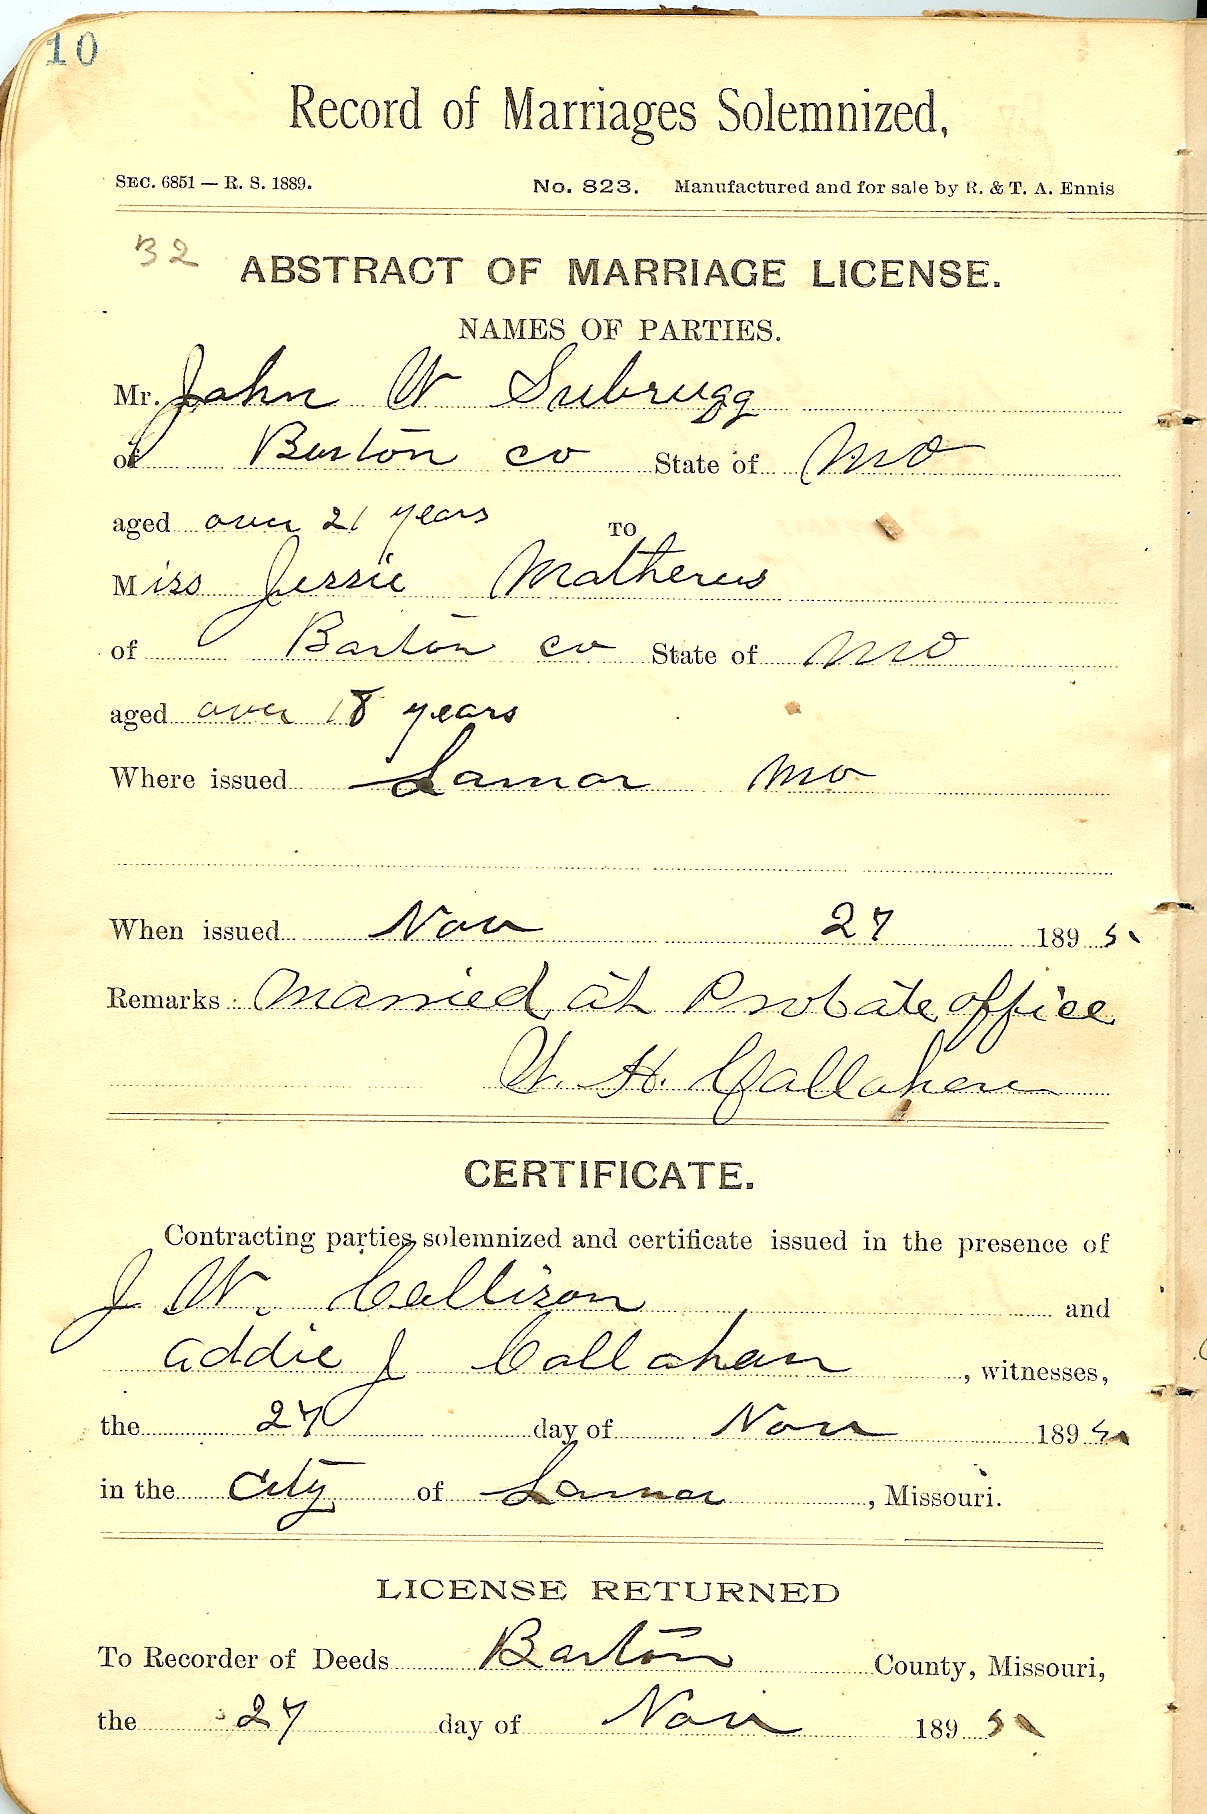 10
Record of Marriages Solemnized,
SEC. 6851 — R. S. 1889. No. 823. Manufactured and for sale by R. & T. A. Ennis
B2
ABSTRACT OF MARRIAGE LICENSE.
NAMES OF PARTIES.
Mr. John W Subrugg
of Barton co State of Mo
aged over 21 years
TO
Miss Jessie Mathews
of Barton co State of Mo
aged over 18 years
Where issued Lamar Mo
When issued Nov 27 1895
Remarks: Married at Probate office
W. H. Callahan
CERTIFICATE.
Contracting parties solemnized and certificate issued in the presence of
J W. Collison and
Addie J Callahan, witnesses,
the 27 day of Nov 1895
in the City of Lamar, Missouri.
LICENSE RETURNED
To Recorder of Deeds Barton County, Missouri,
the 27 day of Nov 1895